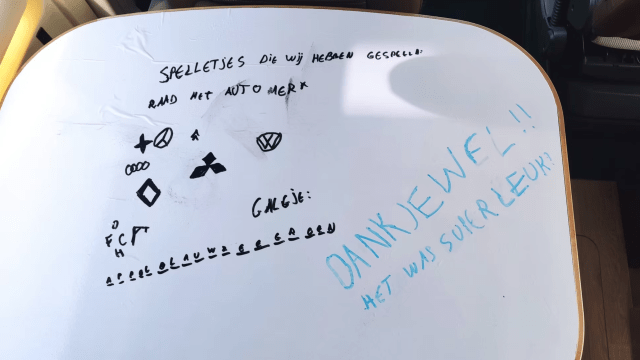 SPELLETJES DIE WIJ HEBBEN GESPEELD:
RAAD HET AUTO MERK
GALGJE:
DANKJEWEL!!
HET WAS SUPER LEUK!